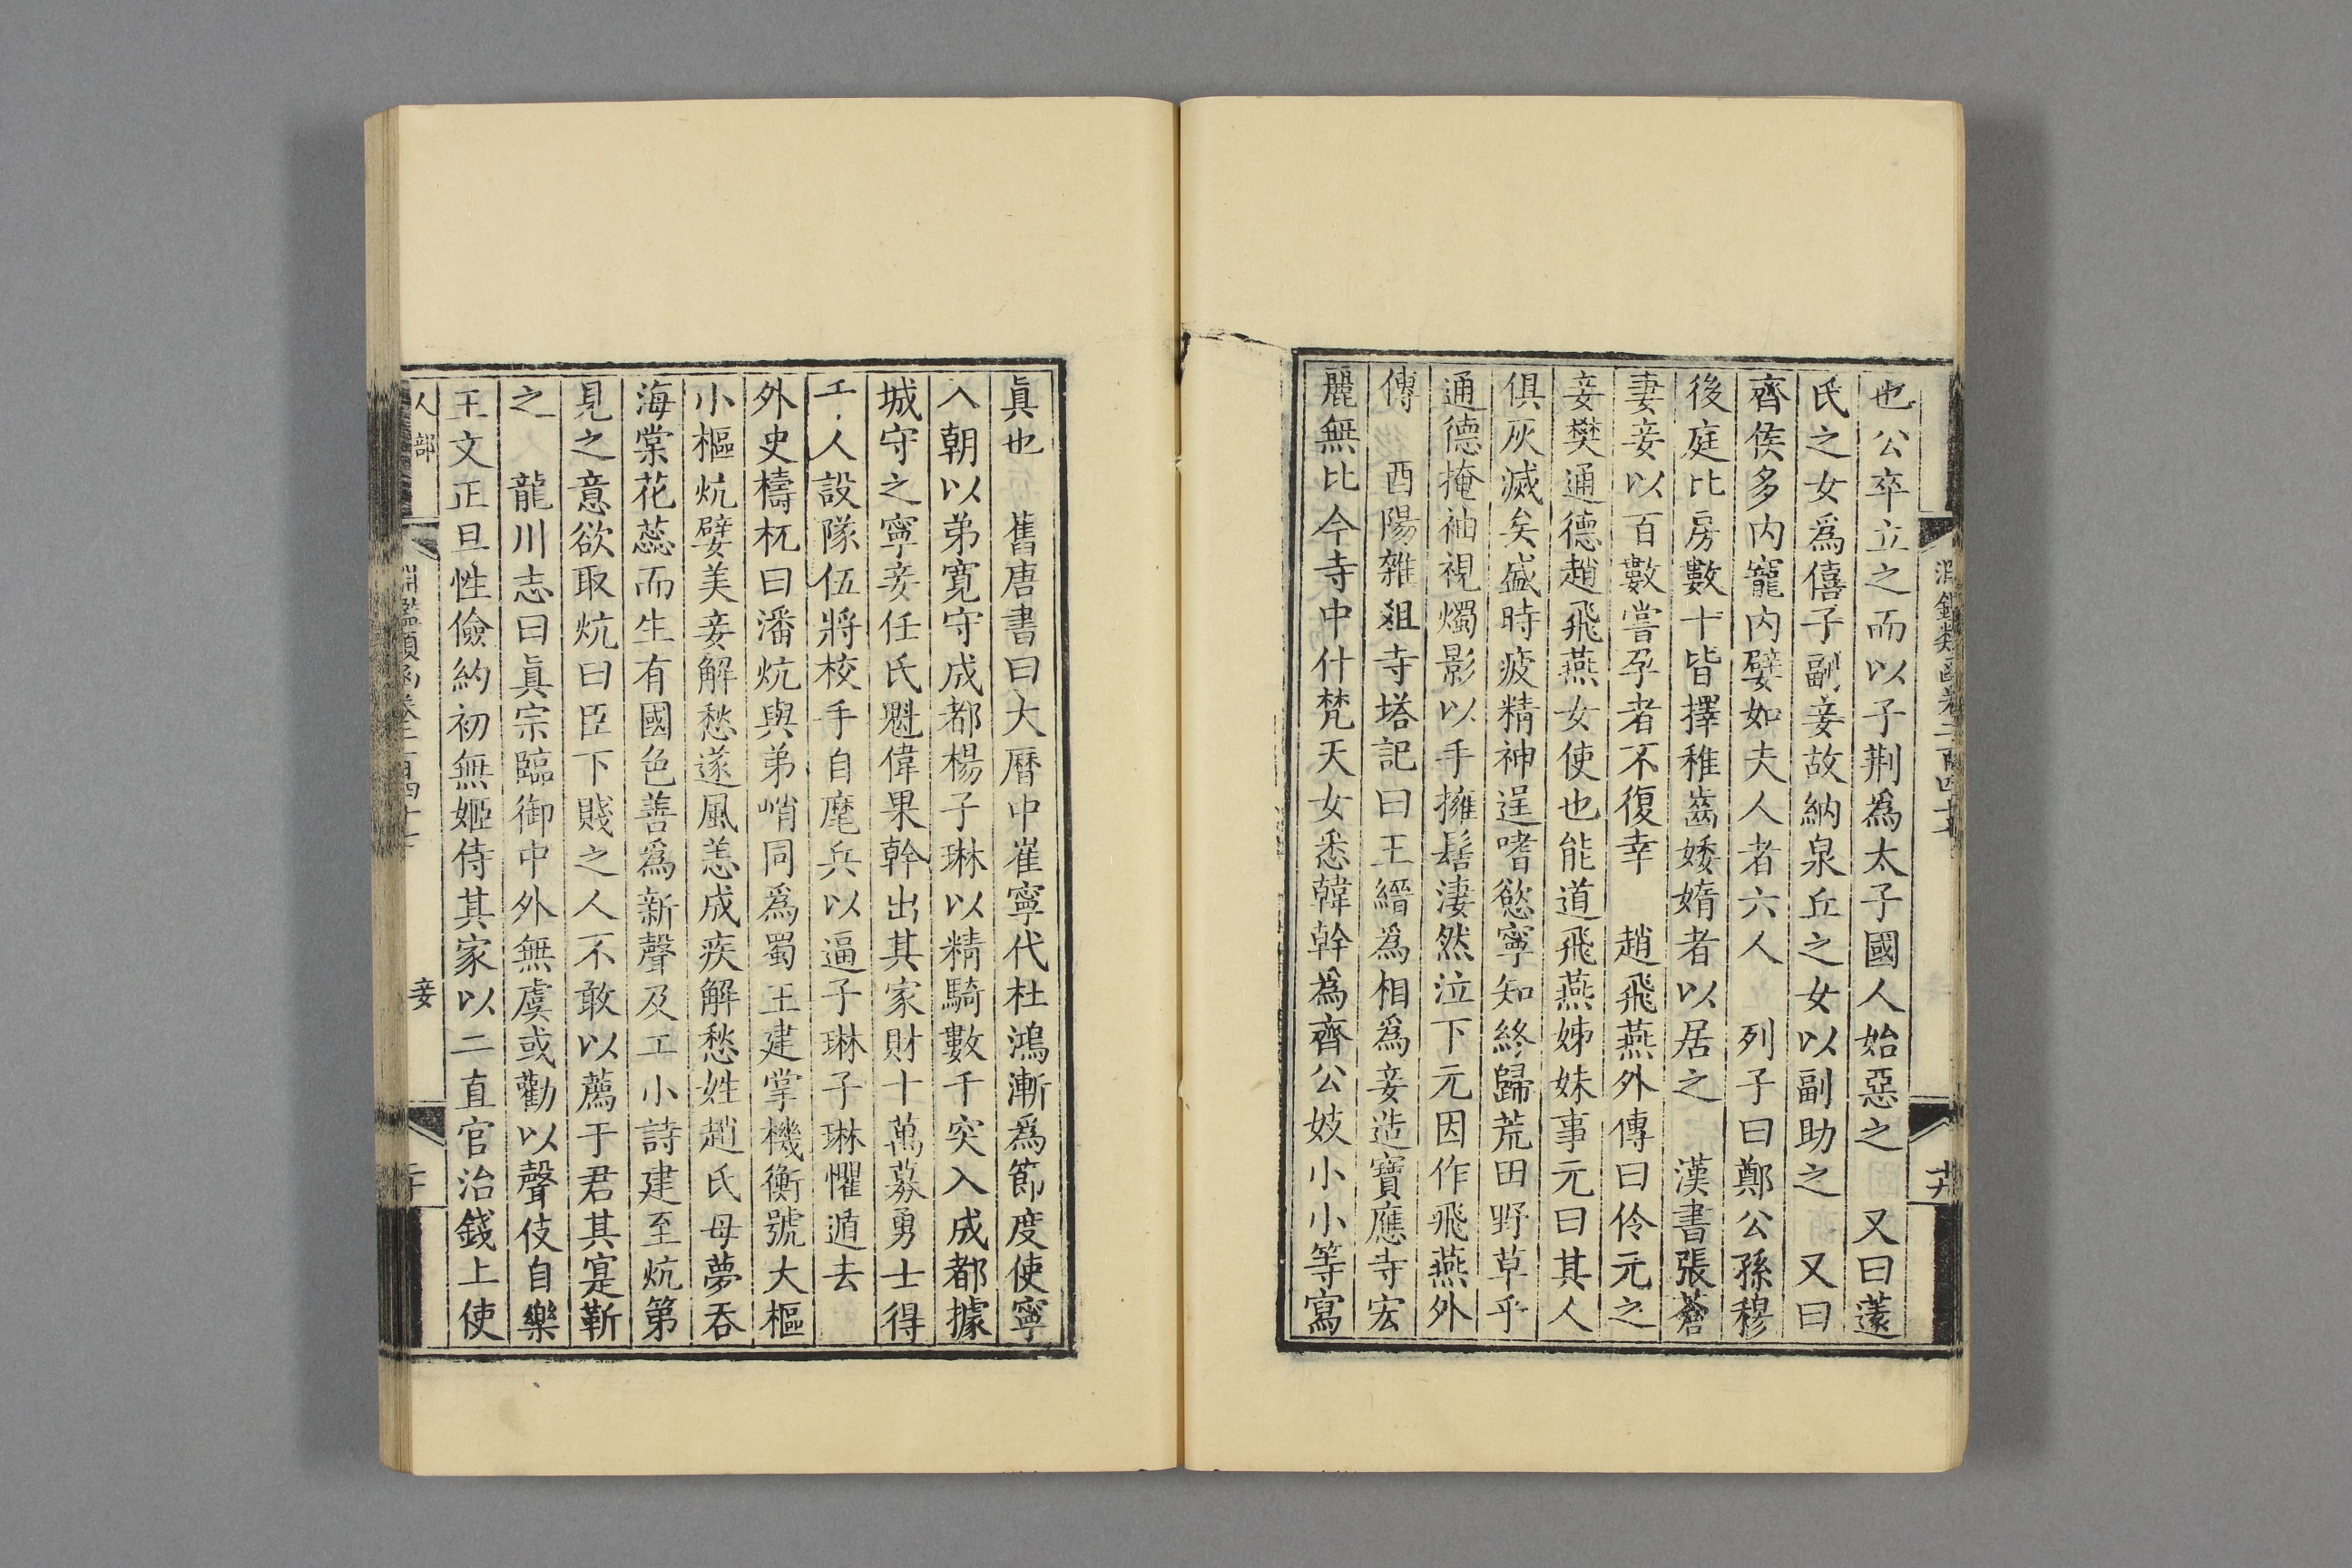 也公卒立之而以子荆爲太子國人始惡之　又曰薳
氏之女爲僖子副妾故納泉丘之女以副助之　又曰
齊侯多内寵内嬖如夫人者六人　列子曰鄭公孫穆
後庭比房數十皆擇稚齒婑媠者以居之　漢書張蒼
妻妾以百數嘗孕者不復幸　趙飛燕外傳曰伶元之
妾樊通德趙飛燕女使也能道飛燕姊妹事元曰其人
俱灰滅矣盛時疲精神逞嗜慾寧知終歸荒田野草乎
通德掩袖視燭影以手擁髻淒然泣下元因作飛燕外
傳　酉陽雜俎寺塔記曰王縉爲相爲妾造寶應寺宏
麗無比今寺中什梵天女悉韓幹爲齊公妓小小等寫
淵鑑類函卷二百四十七
十九
眞也　舊唐書曰大曆中崔寧代杜鴻漸爲節度使寧
入朝以弟寬守成都楊子琳以精騎數千突入成都據
城守之寧妾任氏魁偉果幹出其家財十萬募勇士得
千人設隊伍將校手自麾兵以逼子琳子琳懼遁去
外史檮杌曰潘炕與弟峭同爲蜀王建掌機衡號大樞
小樞炕嬖美妾解愁遂風恙成疾解愁姓趙氏母夢吞
海棠花蕊而生有國色善爲新聲及工小詩建至炕第
見之意欲取炕曰臣下賤之人不敢以薦于君其寔靳
之　龍川志曰眞宗臨御中外無虞或勸以聲伎自樂
王文正旦性儉約初無姬侍其家以二直官治錢上使
人部
淵鑑類函卷二百四十七
妾
二十